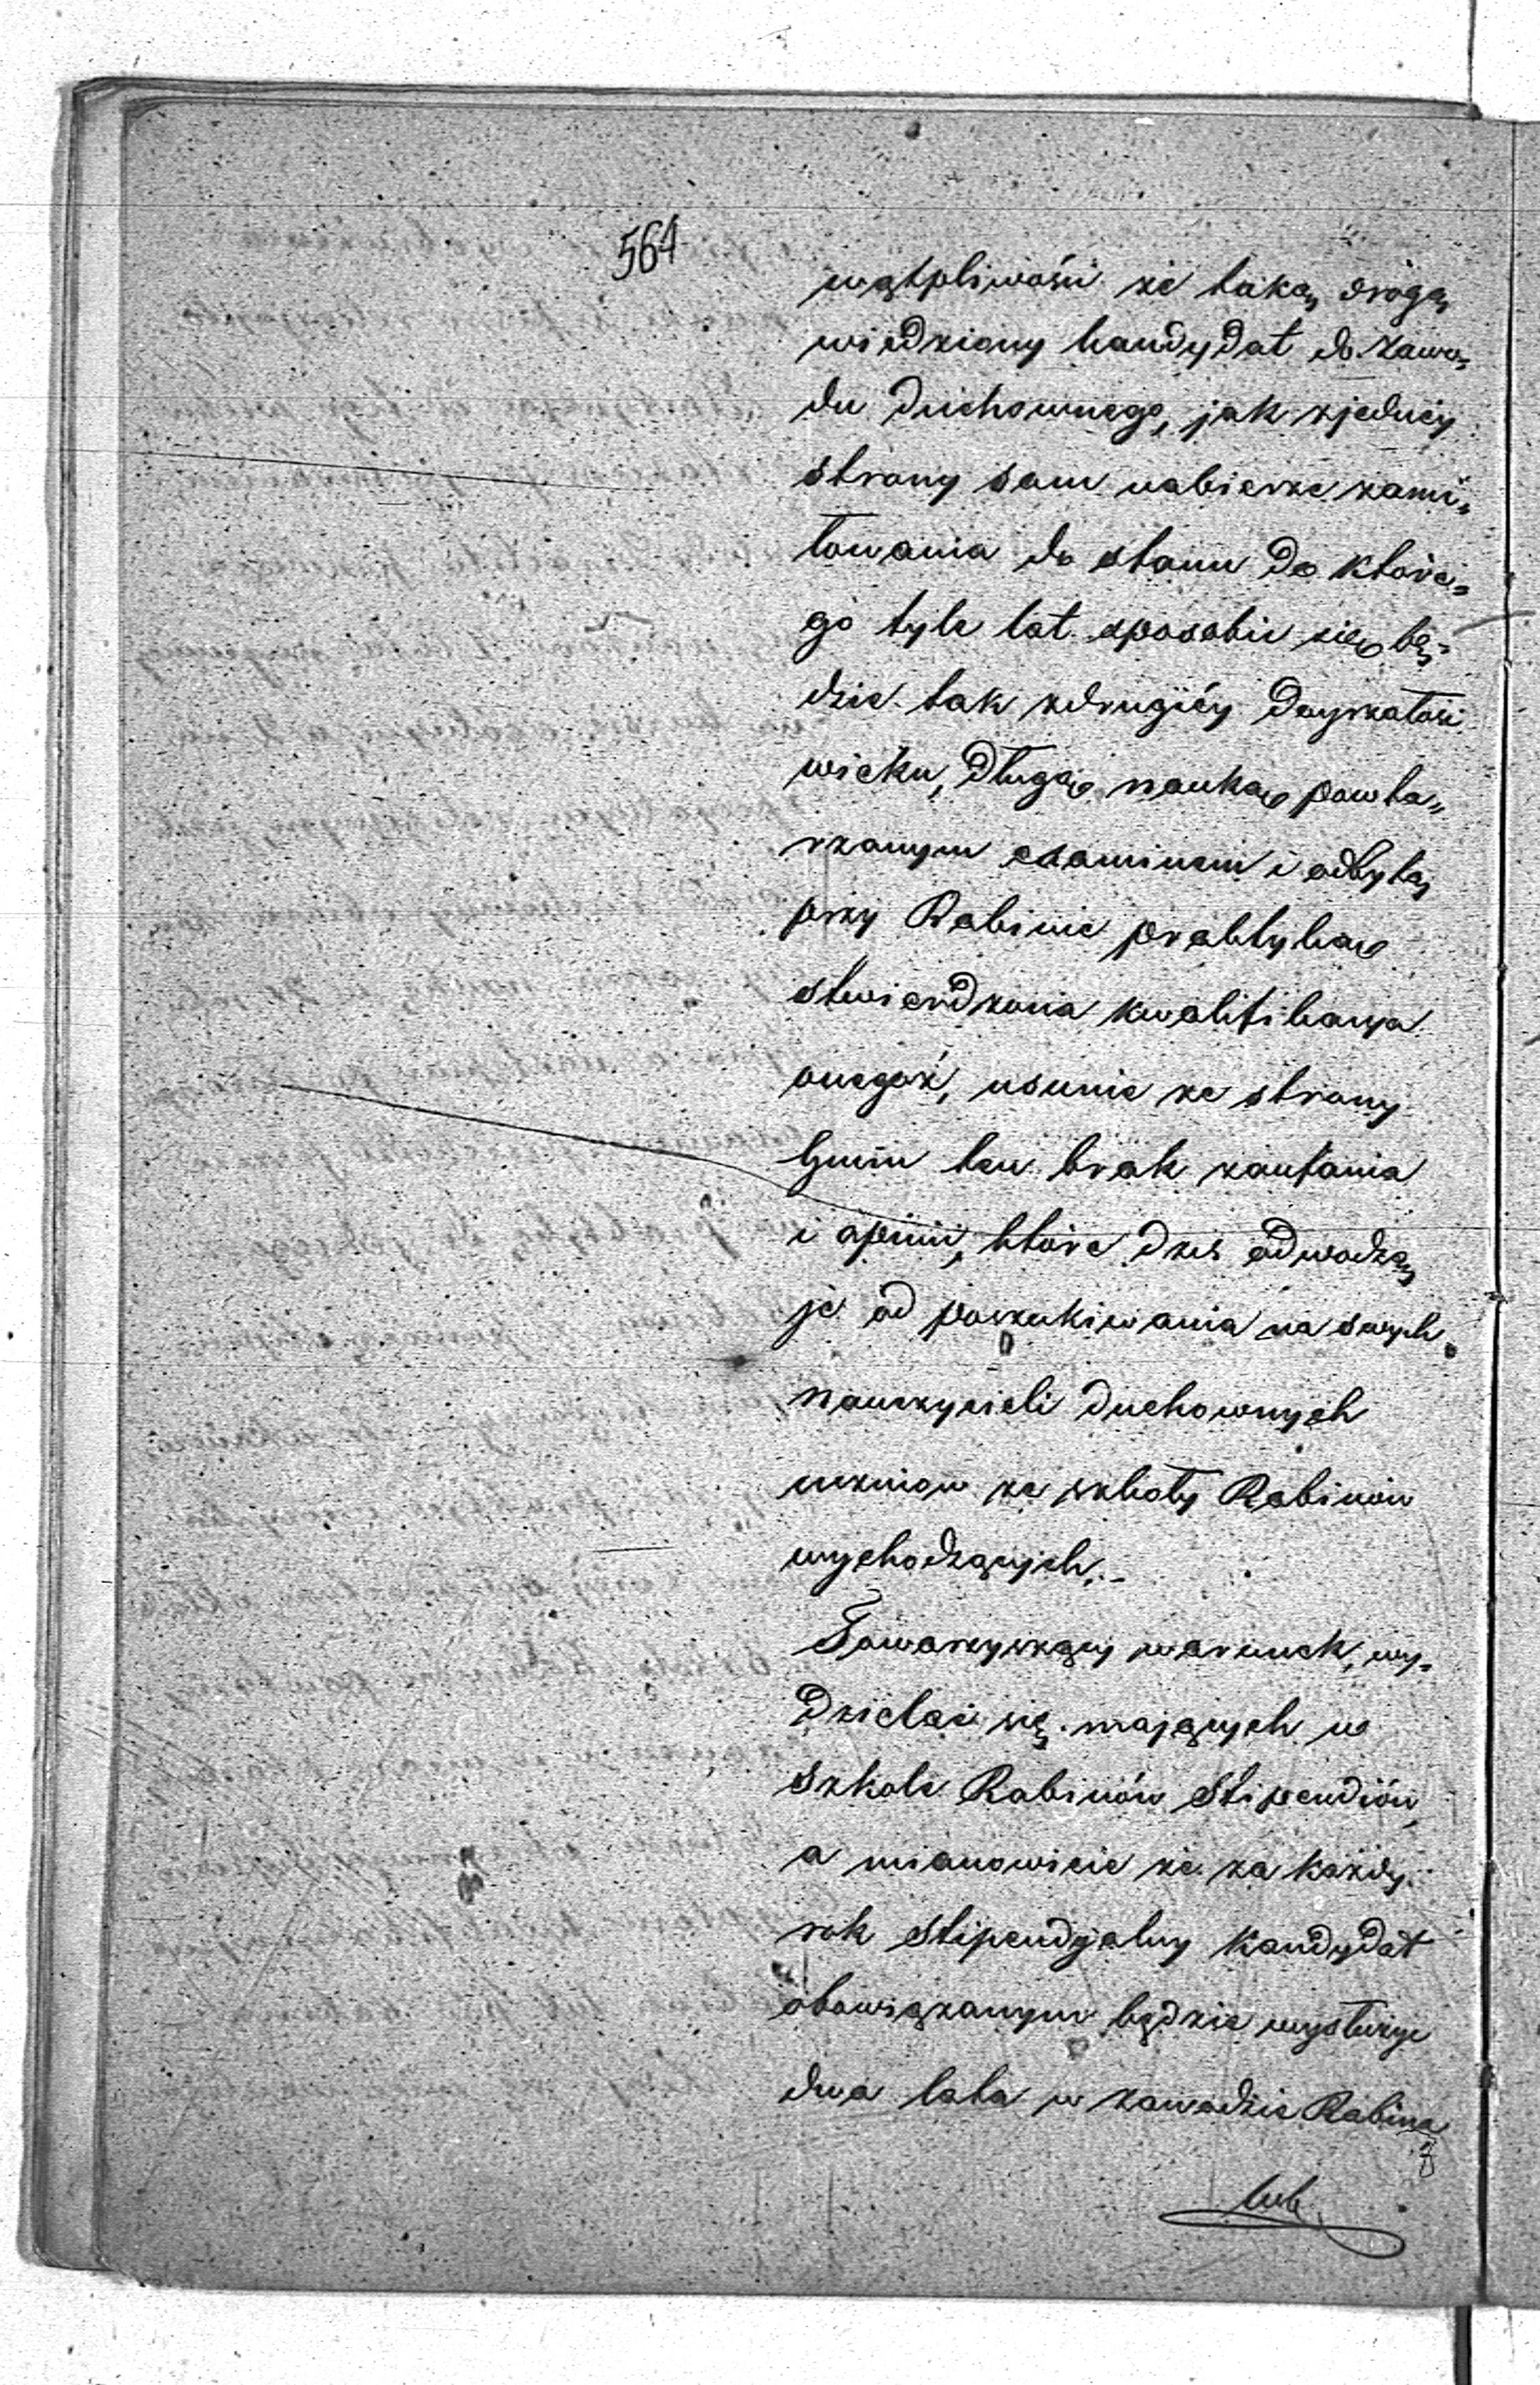 564
wątpliwości że taką drogą
wiedziony kandydat do zawo„
du duchownego, jak z jednéy
strony sam nabierze zami„
łowania do stanu do które„
go tyle lat sposobić się bę„
dzie tak z drugiéy doyrzałość
wieku, długą nauką powta„
rzanym examinem i odbytą
przy Rabinie praktyką
stwierdzona kwalifikacya
onegoż, usunie ze strony
Gmin ten brak zaufania
i opinii, które dziś odwodzą
je od poszukiwania na swych
nauczycieli duchownych
uczniow ze szkoły Rabinow
wychodzących.–
Towarzyszący warunek, wy„
dzielać się mających w
Szkole Rabinów Stipendiów,
a mianowicie że za każdy
rok stipendyalny Kandydat
obowiązanym będzie wysłużyć
dwa lata w zawodzie Rabina
lub